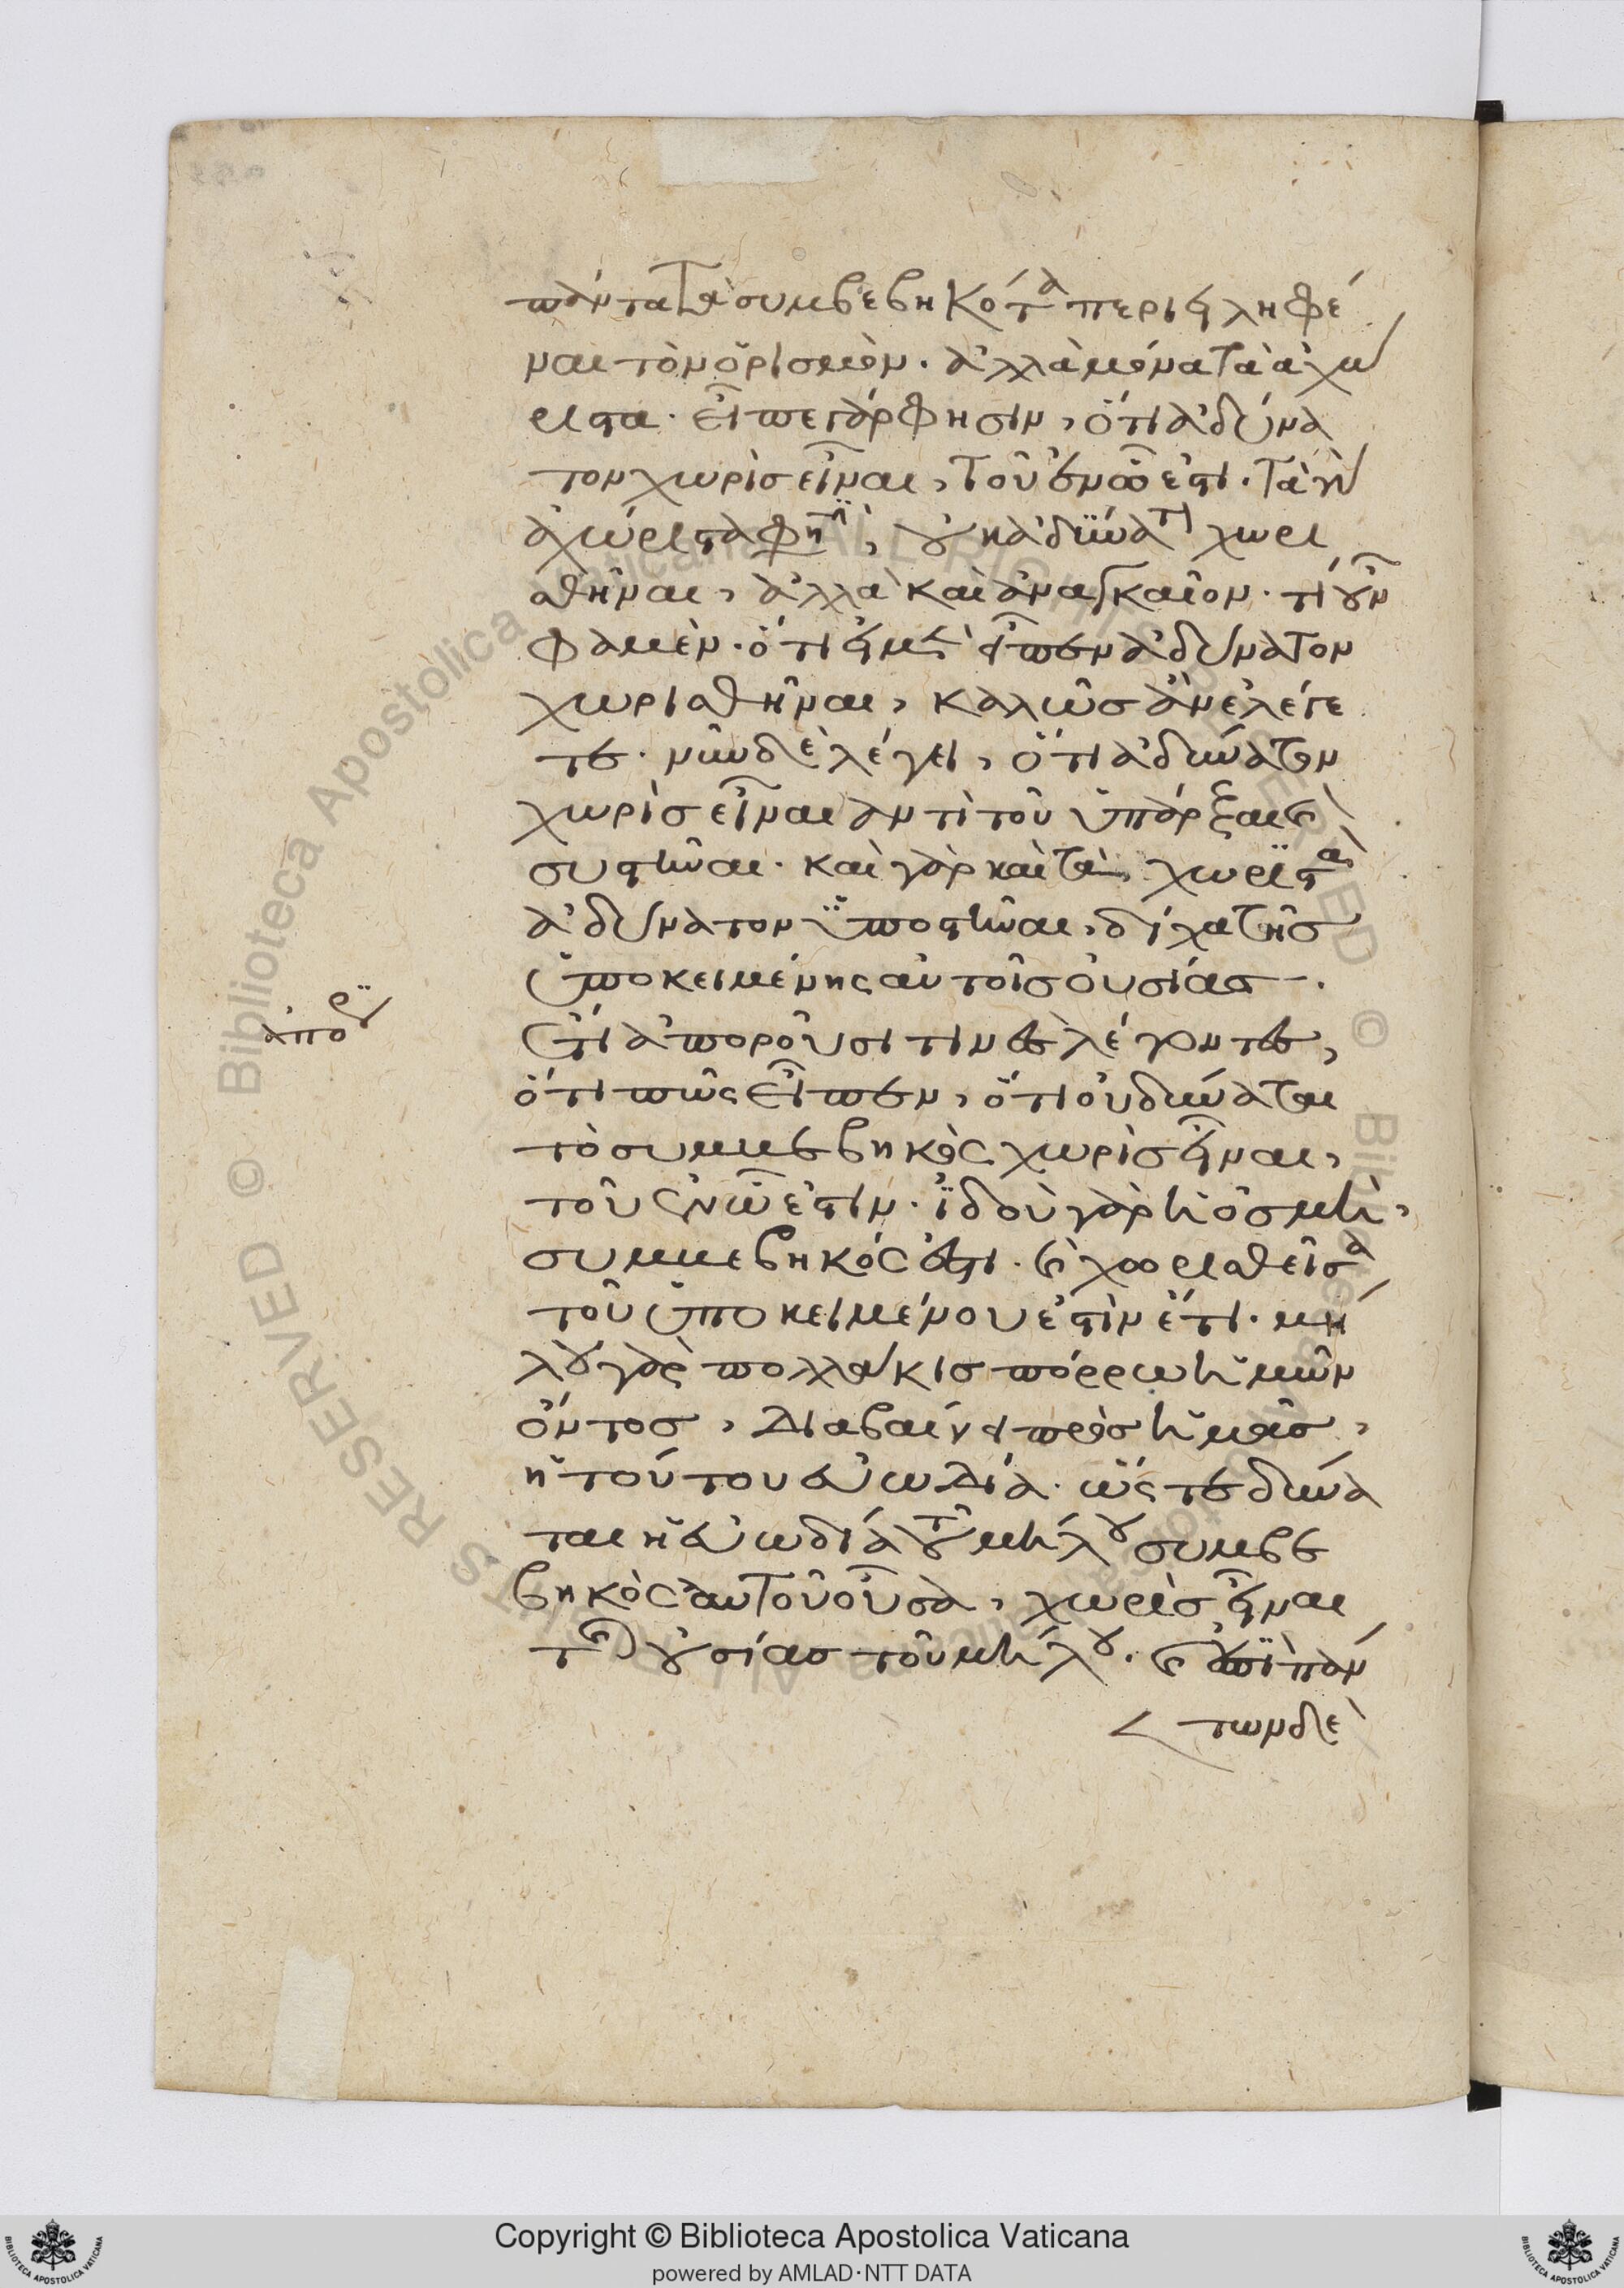 πάντα τὰ συμβεβηκότα περιειληφέ
ναι τὸν ὁρισμόν. ἀλλὰ μόνα τὰ ἀχώ
ριστα. εἶπε γάρ φησιν, ὅτι ἀδύνα
τον χωρὶς εἶναι, τοῦ ἐν ᾧ ἐστι. τὰ γὰρ
ἀχώριστά φησι, οὐκ ἀδύνατον χωρι
σθῆναι, ἀλλὰ καὶ ἀναγκαῖον. τί οὖν
φαμέν. ὅτι εἰ μὲν εἶπεν ἀδύνατον
χωρισθῆναι, καλῶς ἂν ἐλέγε
τε. νῦν δὲ λέγει, ὅτι ἀδύνατον
χωρὶς εἶναι ἀντὶ τοῦ ὑπάρξαι καὶ
συστῆναι. καὶ γὰρ καὶ τὰ χωριστὰ
ἀδύνατον ὑποστῆναι, δίχα τῆς
ὑποκειμένης αὐτοῖς οὐσίας.
ἀπορ
Ἔτι ἀποροῦσι τινὲς λέγοντες,
ὅτι πῶς εἶπεν, ὅτι οὐ δύναται
τὸ συμβεβηκὸς χωρὶς εἶναι,
τοῦ ἐν ᾧ ἐστιν. ἰδοὺ γὰρ ἡ ὀσμὴ,
συμβεβηκός ἐστι. καὶ χωρισθεῖσα
τοῦ ὑποκειμένου ἐστὶν ἔτι. μή
λου γὰρ πολλάκις πόρρω ἡμῶν
ὄντος, διαβαίνει πρὸς ἡμᾶς,
ἡ τούτου εὐωδία. ὥστε δύνα
ται ἡ εὐωδία τοῦ μήλου συμβε
βηκὸς αὐτοῦ οὖσα, χωρὶς εἶναι
τῆς οὐσίας τοῦ μήλου. καὶ ἐπὶ πάν
των δὲ
Copyright © Biblioteca Apostolica Vaticana
powered by AMLAD·NTT DATA